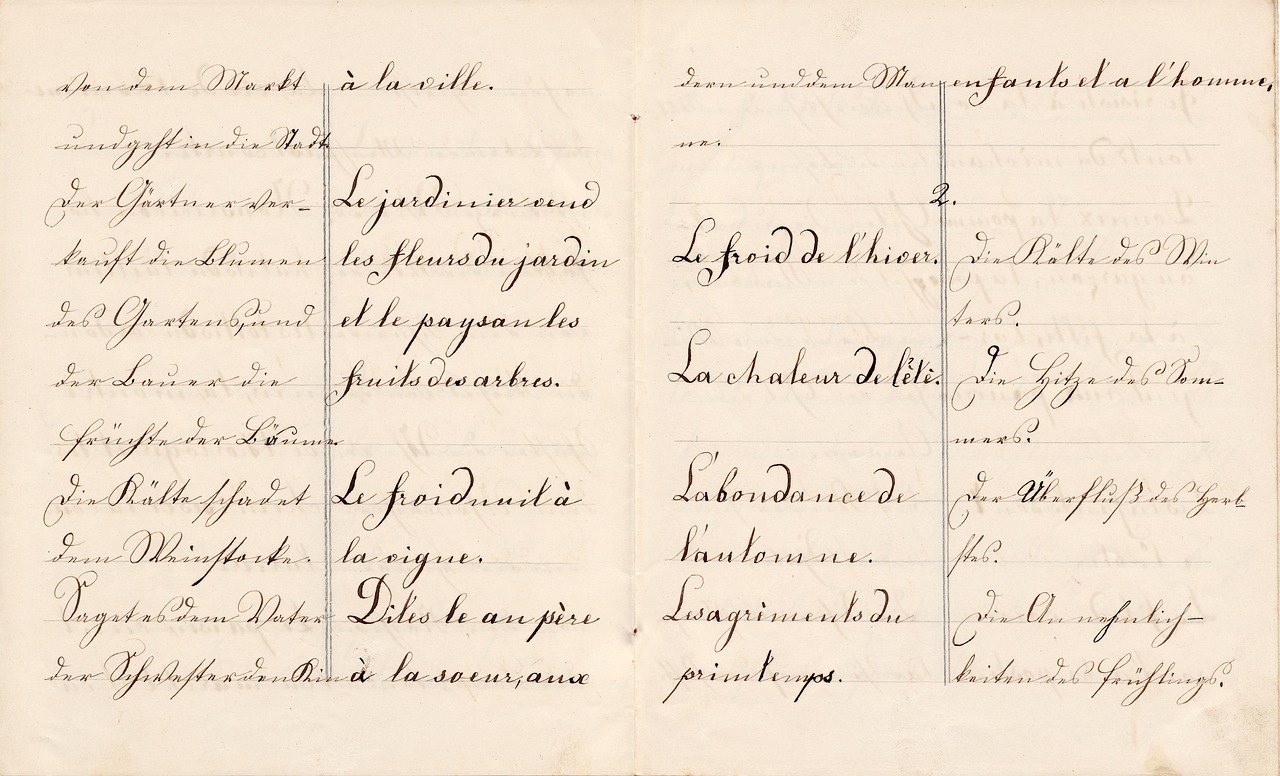 von dem Markt
und geht in die Stadt.
Der Gärtner ver-
kauft die Blumen
des Gartens, und
der Bauer die
Früchte der Bäume.
Die Kälte schadet
dem Weinstocke.
Saget es dem Vater
der Schwester den Kin
à la ville.
Le jardinier vend
les fleurs du jardin
et le paysan les
fruits des arbres.
Le froid nuit à
la vigne.
Dites le au père
à la soeur, aux
dern und dem Man
ne.
enfants et a l'homme.
2.
Le froid de l'hiver.
La chaleur de l'été.
L'abondance de
l'automne.
Les agréments du
printemps.
Die Kälte des Win
ters.
Die Hitze des Som-
mers.
Der Überfluß des Herb
stes.
Die Annehmlich-
keiten des Frühlings.